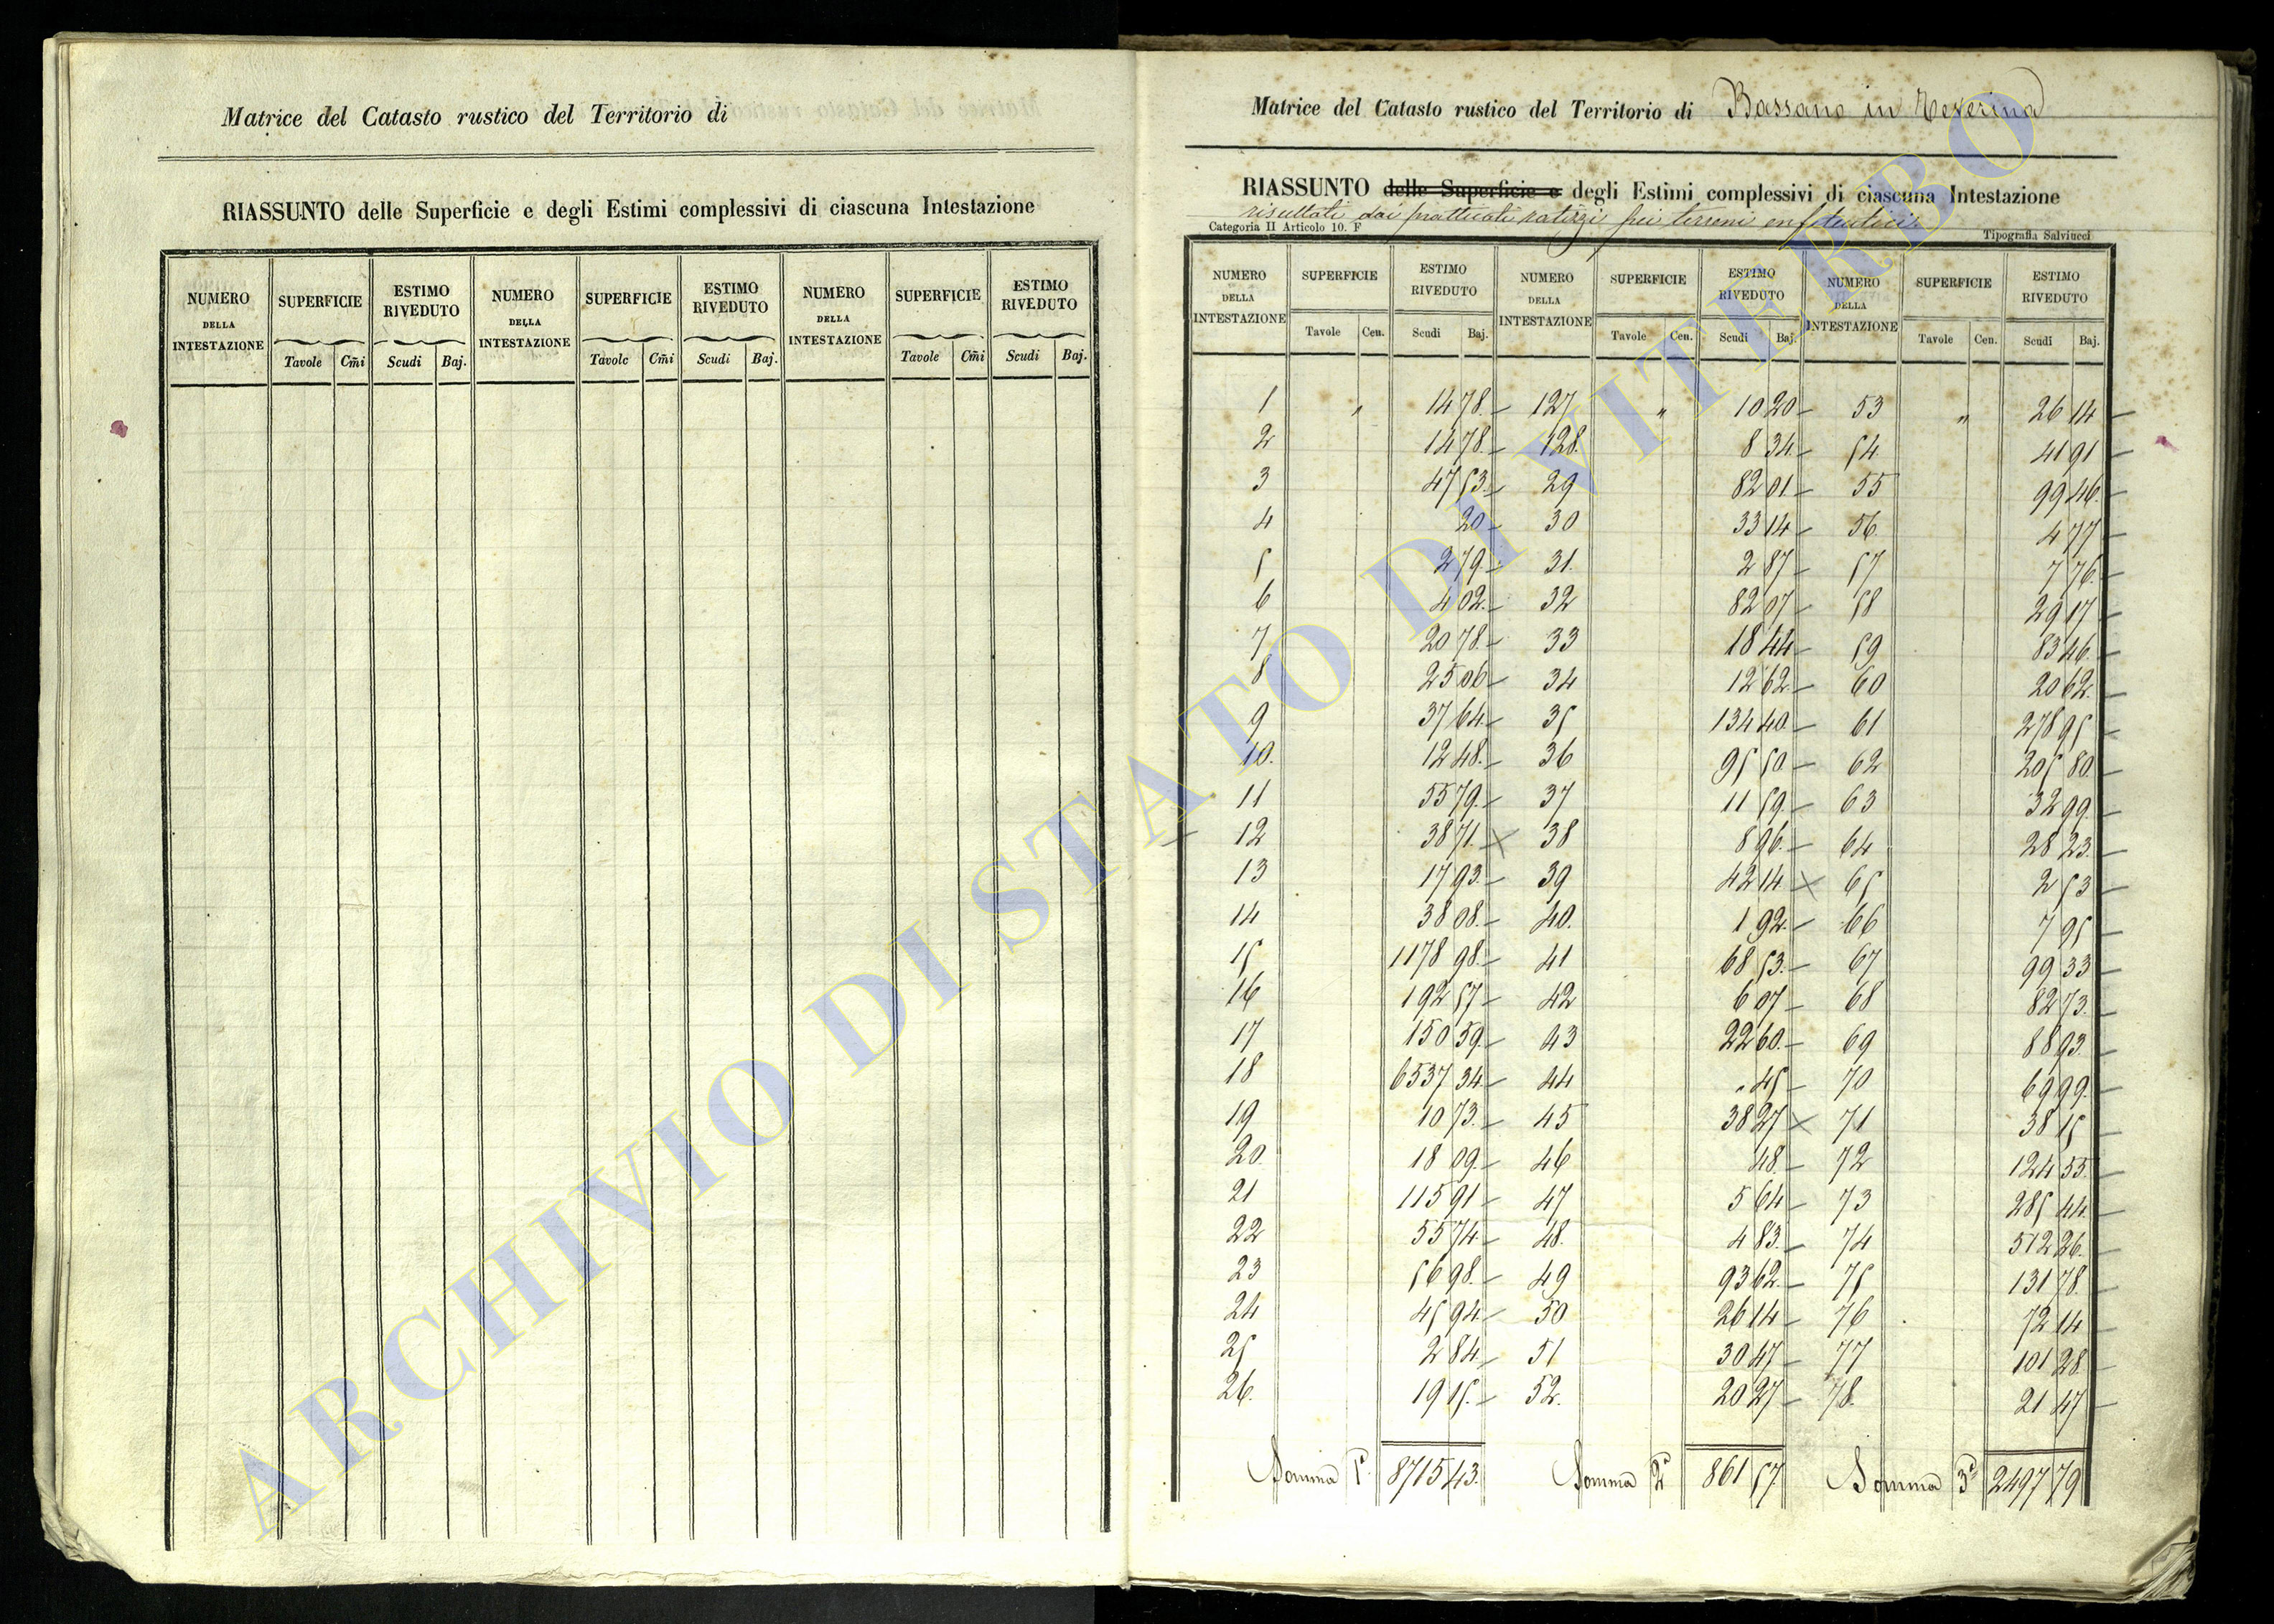 Matrice del Catasto rustico del Territorio di
RIASSUNTO delle Superficie e degli Estimi complessivi di ciascuna Intestazione
NUMERO DELLA INTESTAZIONE SUPERFICIE ESTIMO RIVEDUTO NUMERO DELLA INTESTAZIONE SUPERFICIE ESTIMO RIVEDUTO NUMERO DELLA INTESTAZIONE SUPERFICIE ESTIMO RIVEDUTO
Tavole Cm̃i Scudi Baj. Tavole Cm̃i Scudi Baj. Tavole Cm̃i Scudi Baj.
Matrice del Catasto rustico del Territorio di Bassano in Teverina
RIASSUNTO delle Superficie e degli Estimi complessivi di ciascuna Intestazione
risultati dai pratticati ratizzi pei terreni enfiteutici
Categoria II Articolo 10. F Tipografia Salviucci
NUMERO DELLA INTESTAZIONE SUPERFICIE ESTIMO RIVEDUTO NUMERO DELLA INTESTAZIONE SUPERFICIE ESTIMO RIVEDUTO NUMERO DELLA INTESTAZIONE SUPERFICIE ESTIMO RIVEDUTO
Tavole Cen. Scudi Baj. Tavole Cen. Scudi Baj. Tavole Cen. Scudi Baj.
1 " 14 78. 127 " 10 20 53 " 26 14
2 14 78. 128. 8 34 54 41 91
3 47 53. 29 82 01 55 99 46.
4 20 30 33 14 56. 4 77
5 2 79. 31. 2 87 57 7 76.
6 4 02. 32 82 07 58 29 17
7 20 78. 33 18 44 59 83 46.
8 25 06 34 12 62 60 20 62.
9 37 64 35 134 40. 61 278 95
10. 12 48. 36 95 50 62 205 80
11 55 79. 37 11 59. 63 32 99.
12 38 71. 38 8 96. 64 28 23.
13 17 93. 39 42 14 65 2 53
14 38 08. 40. 1 92. 66 7 95
15 1178 98. 41 68 53. 67 99 33
16 192 57 42 6 07 68 82 73.
17 150 59. 43 22 60. 69 88 93.
18 6537 34 44 " 45 70 69 99.
19 10 73. 45 38 27 71 38 15
20. 18 09. 46 48. 72 124 55.
21 115 91 47 5 64 73 285 44.
22 55 74 48. 4 83. 74 512 26.
23 56 98. 49 93 62. 75 131 78.
24 45 94 50 26 14 76 72 14
25 2 84 51 30 47 77 101 28.
26. 19 15. 52. 20 27 78. 21 47
Somma 1ª. 8715 43. Somma 2ª 861 57. Somma 3ª 2497 79
ARCHIVIO DI STATO DI VITERBO